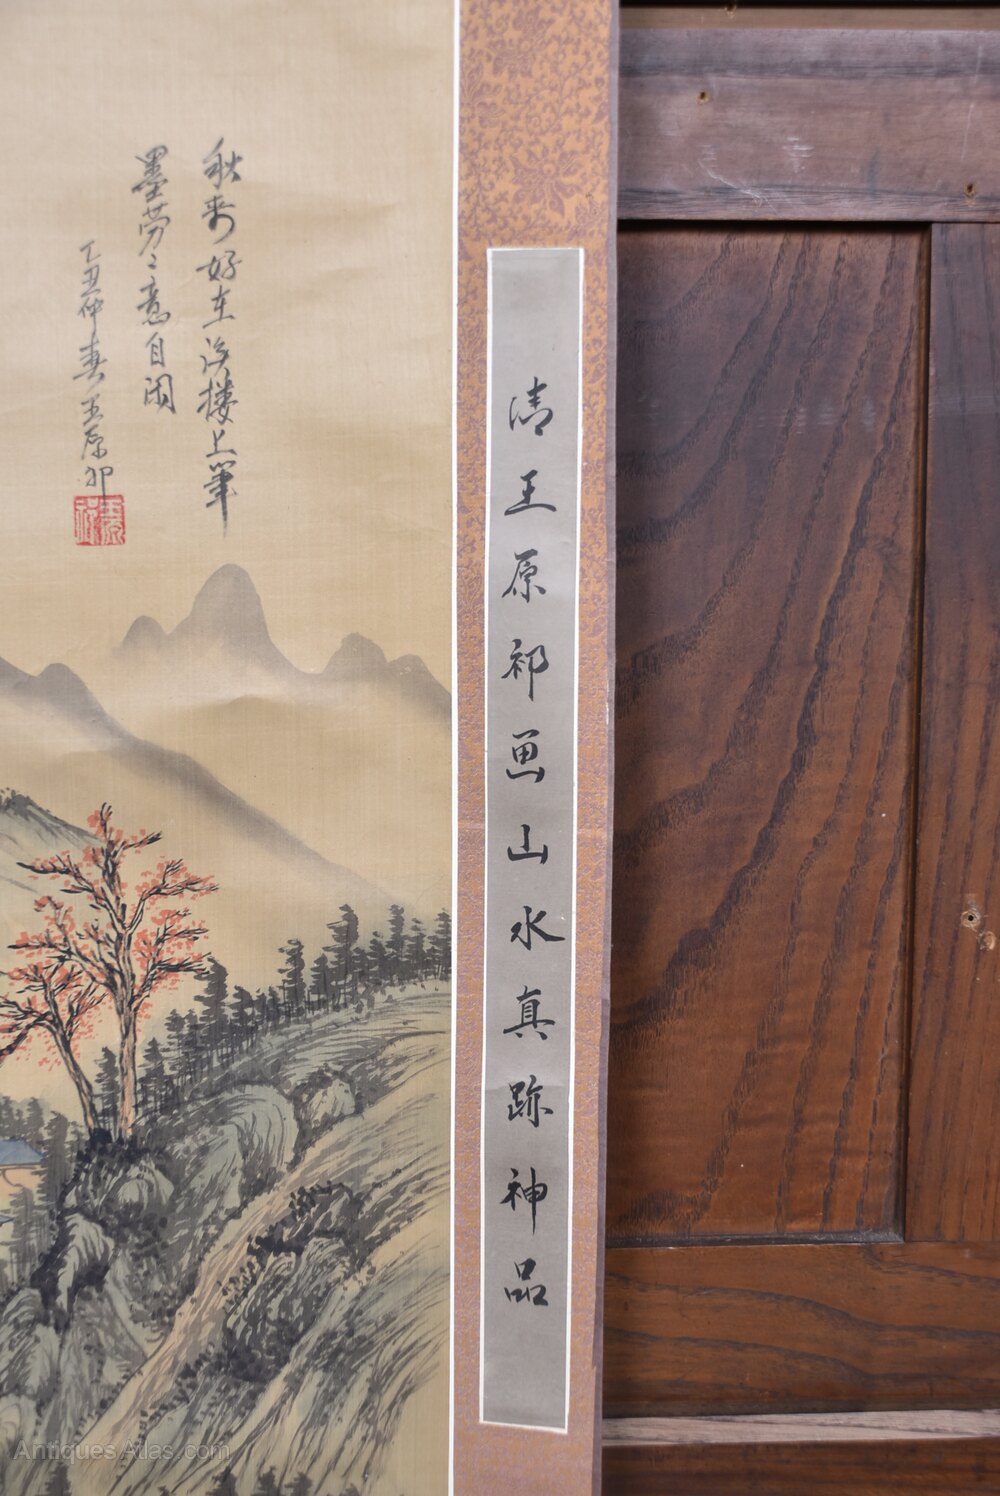 秋来好在溪楼上筆
墨劳〻意自闲
丁丑仲春王原祁
清王原祁画山水真跡神品
AntiquesAtlas.com